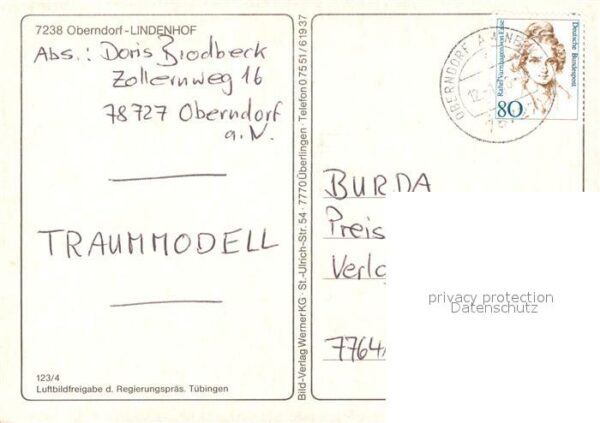 7238 Oberndorf-LINDENHOF
Abs.: Doris Brodbeck
Zollernweg 16
78727 Oberndorf
a.N.
TRAUMMODELL
123/4
Luftbildfreigabe d. Regierungspräs. Tübingen
Bild-Verlag Werner KG · St.-Ulrich-Str. 54 · 7770 Überlingen · Telefon 07551/61937
OBERNDORF A
12
Rahel Varnhagen von Ense
Deutsche Bundespost
80
BURDA
Preis
Verla
7764
privacy protection
Datenschutz